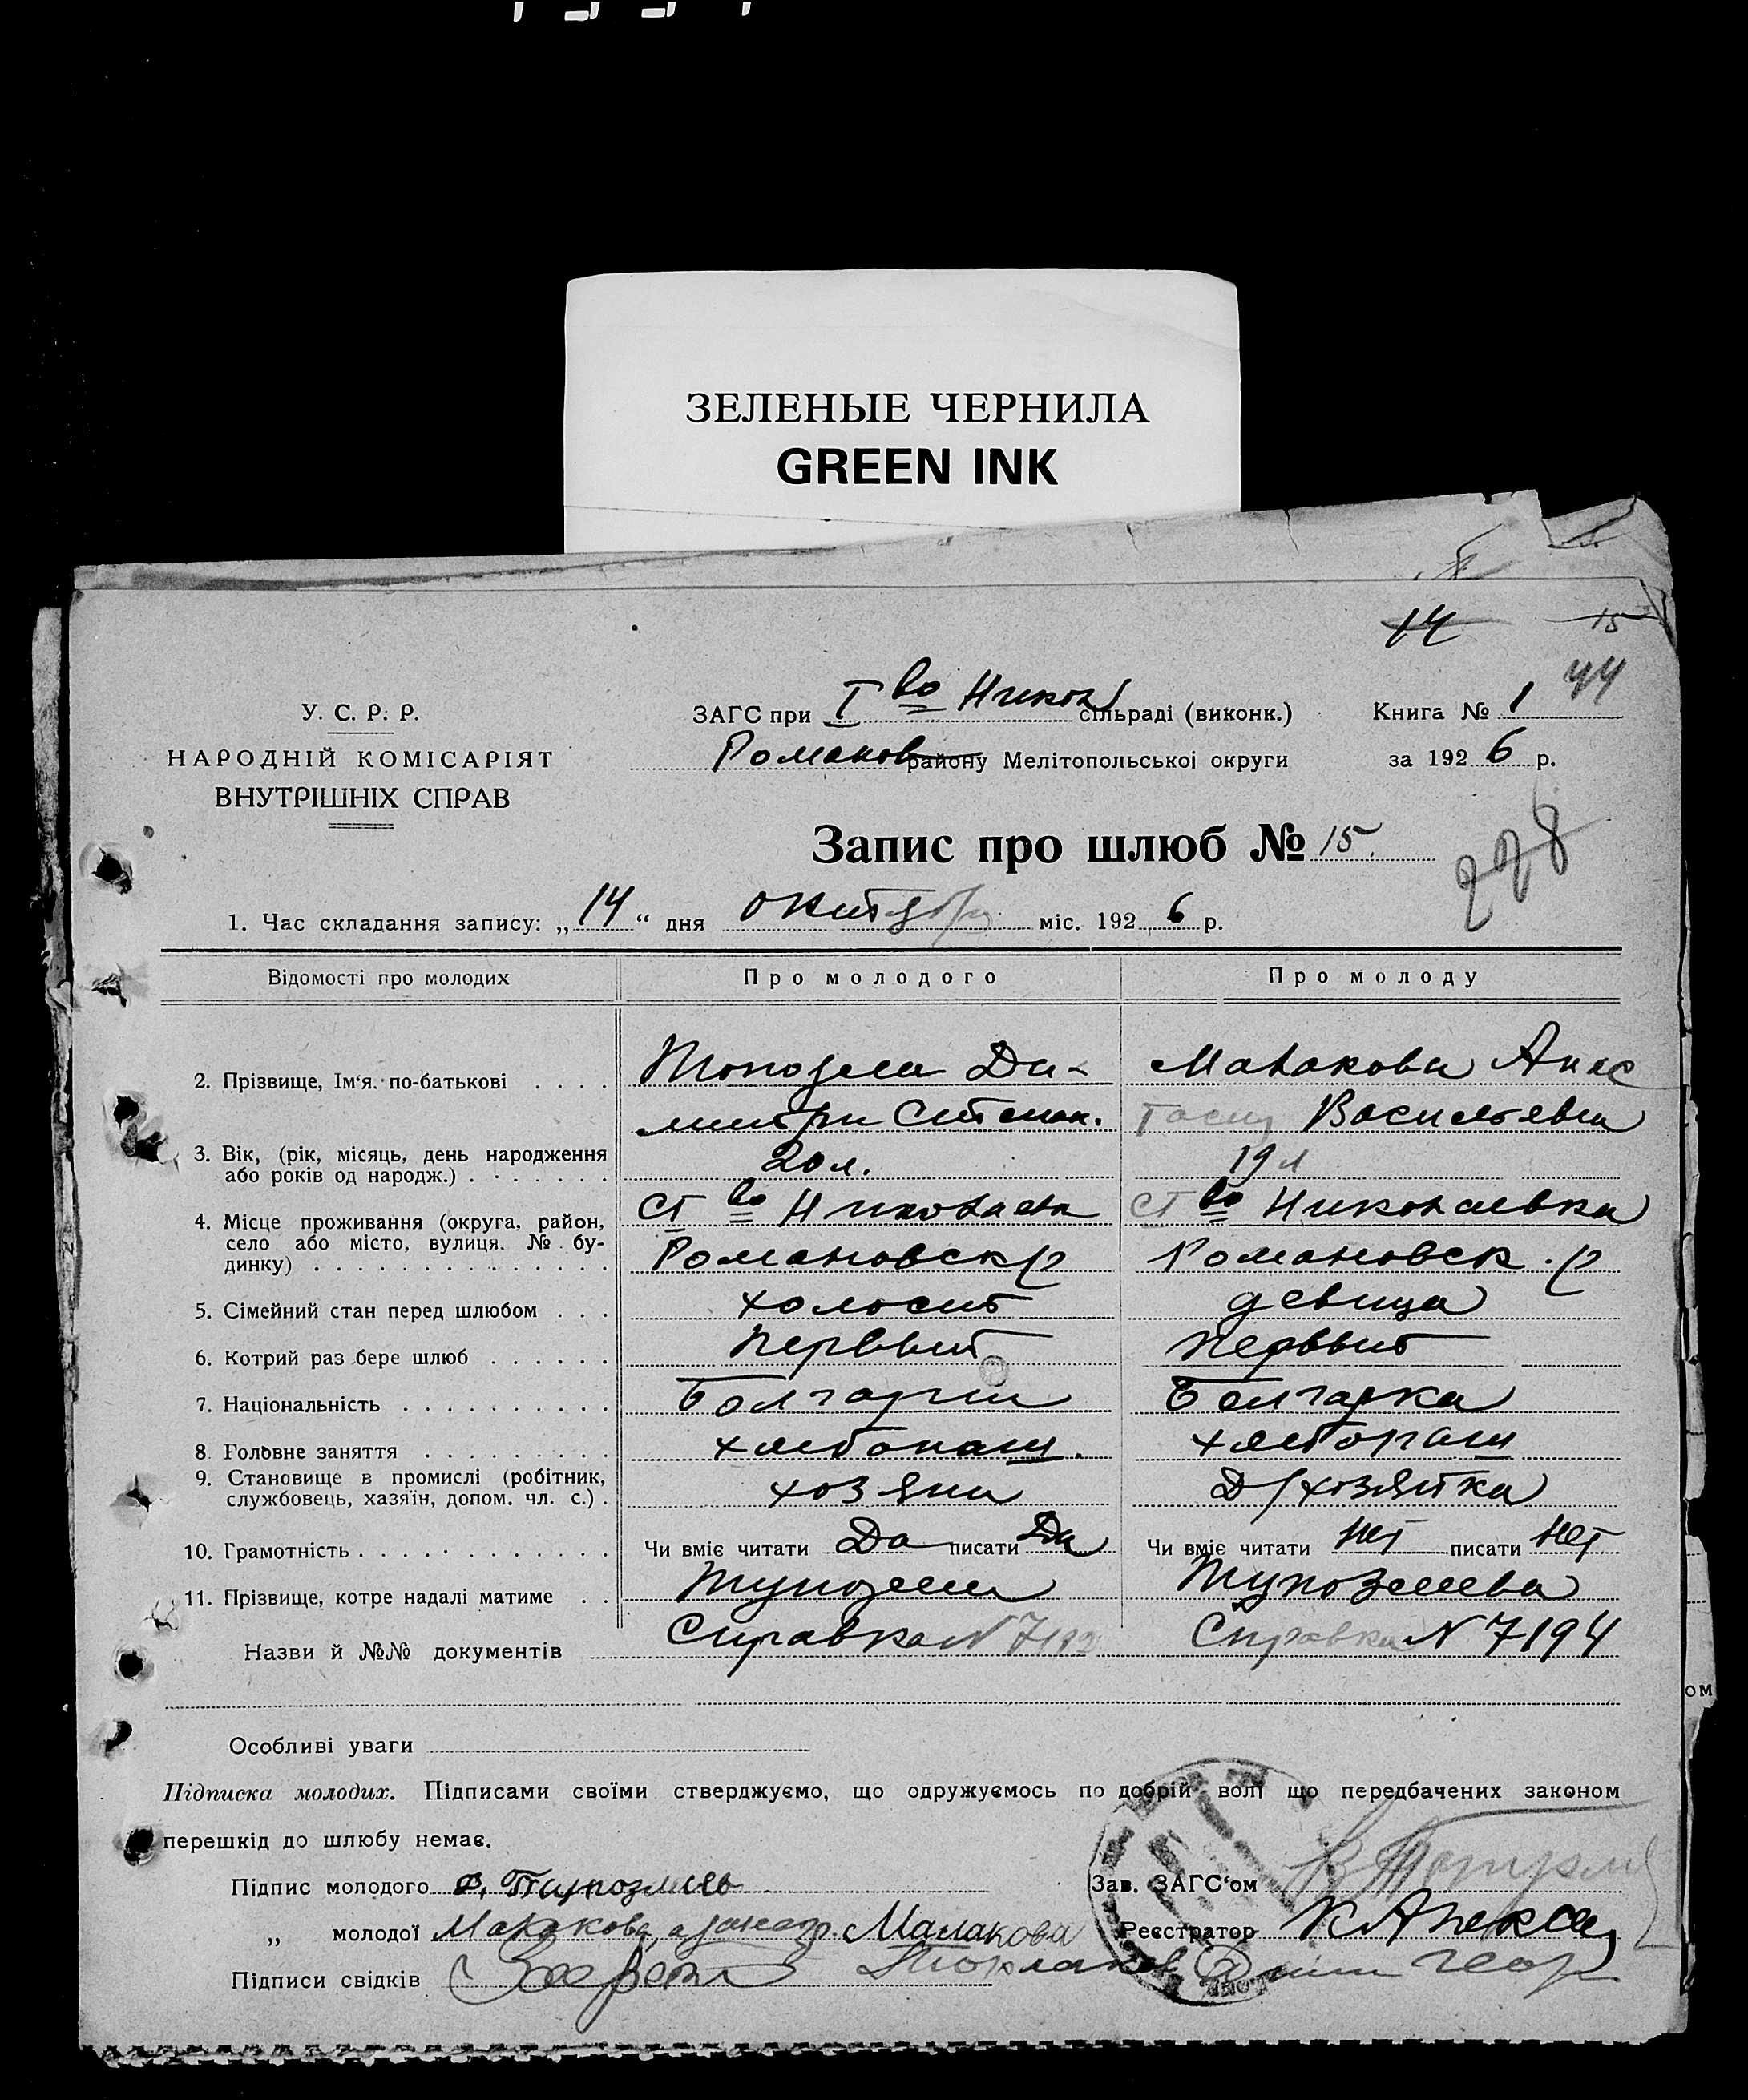 ЗЕЛЕНЫЕ ЧЕРНИЛА
GREEN INK
14 15
44
У. С. Р. Р.
НАРОДНІЙ КОМІСАРІЯТ
ВНУТРІШНІХ СПРАВ
ЗАГС при I во Никол сільраді (виконк.) Книга № 1
Романов району Мелітопольської округи за 1926 р.
Запис про шлюб № 15.
278
1. Час складання запису: „14“ дня октября міс. 1926 р.
Відомості про молодих Про молодого Про молоду
2. Прізвище, Ім‘я. по-батькові Топозлы Ди- Малакова Анас
митри Степан. тасия Васильевна
3. Вік, (рік, місяць, день народження або років од народж.) 20 л. 19 л
4. Місце проживання (округа, район, село або місто, вулиця. № будинку) ст во Николаевка ст во Николаевка
Романовск р Романовск. р
5. Сімейний стан перед шлюбом холост девица
6. Котрий раз бере шлюб Первый Первый
7. Національність Болгарин Болгарка
8. Головне заняття хлебопаш. хлебопаш
9. Становище в промислі (робітник, службовець, хазяїн, допом. чл. с.) хозяин Д/хозяйка
10. Грамотність Чи вміє читати Да писати Да Чи вміє читати Нет писати Нет
11. Прізвище, котре надалі матиме
Назви й №№ документів Справка N 7192 Справка N 7194
Особливі уваги
Підписка молодих. Підписами своїми стверджуємо, що одружуємось по добрій волі що передбачених законом
перешкід до шлюбу немає.
Підпис молодого Зав. ЗАГС‘ом
„ молодої Малакова, а занеогр. Малакова Реєстратор К Алекса
Підписи свідків
ом